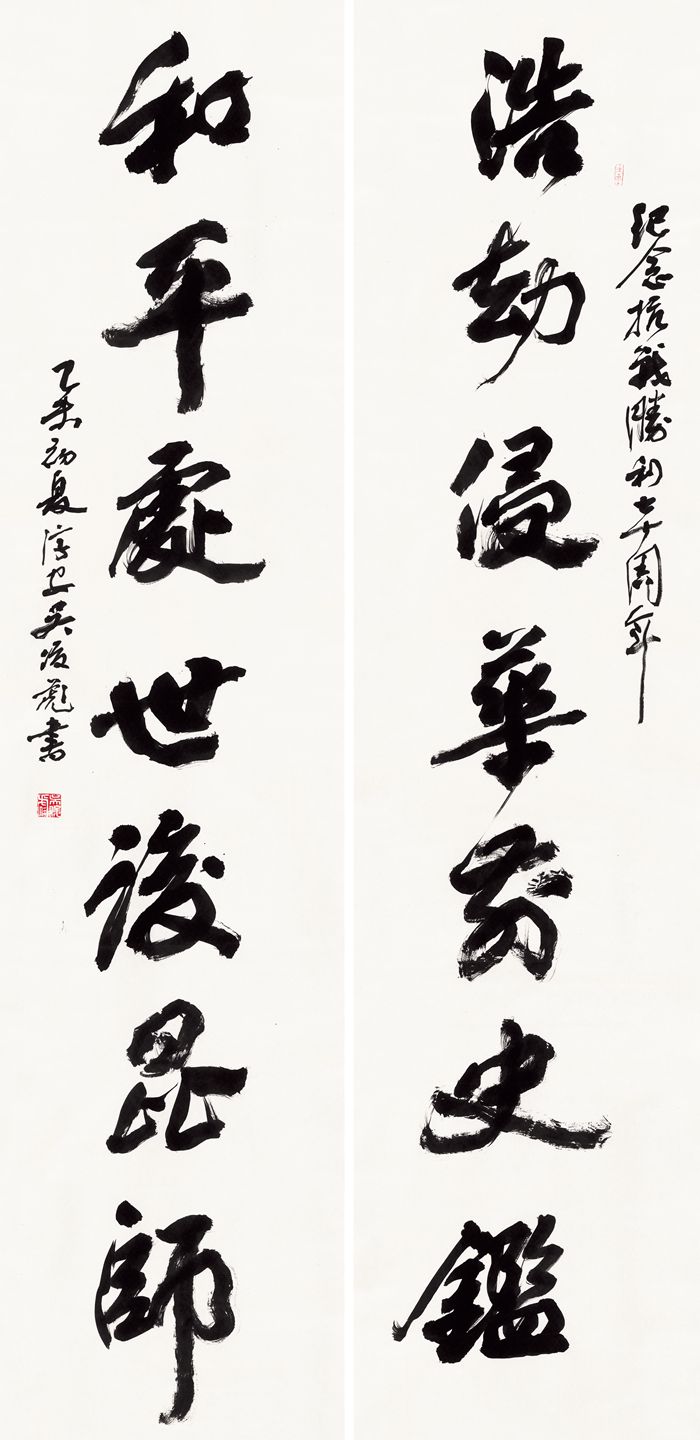 紀念抗戰勝利七十周年
浩劫侵華前史鑑
和平處世後昆師
乙未初夏淳安吳順彪書